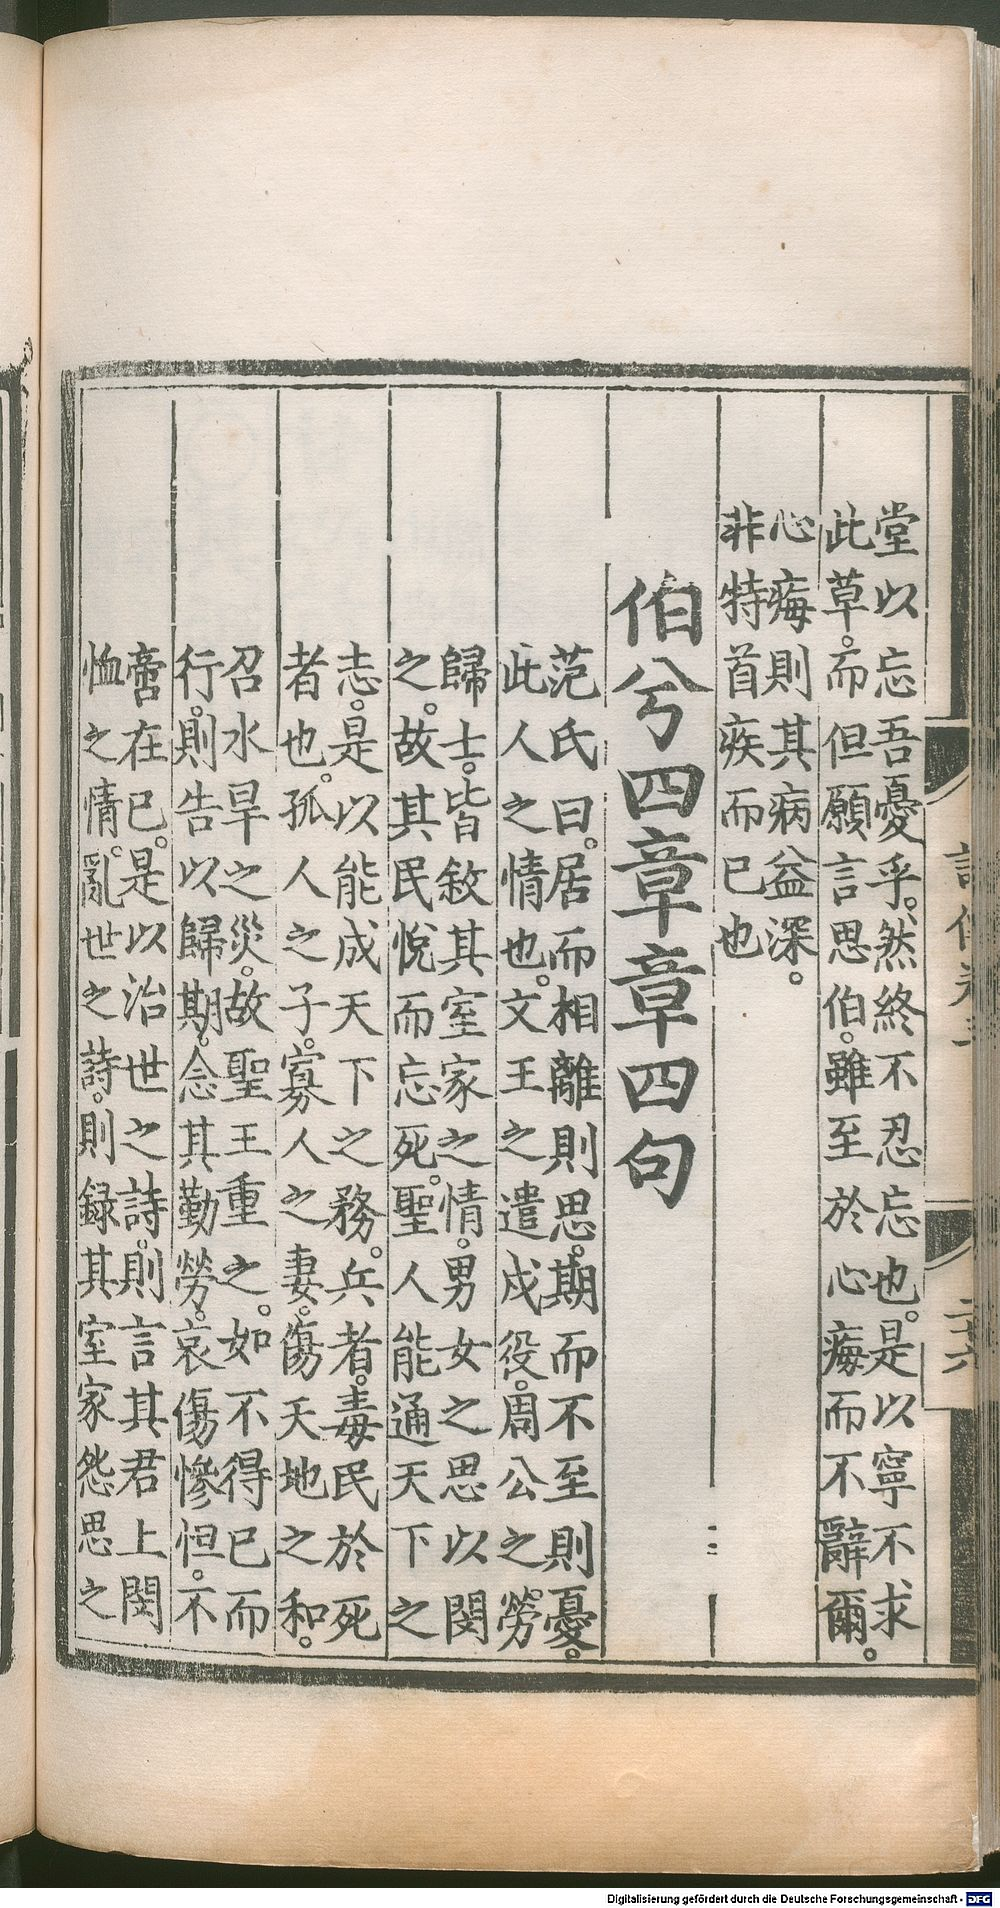 堂以忘吾憂乎。然終不忍忘也。是以寧不求
此草。而但願言思伯。雖至於心痗而不辭爾。
心痗則其病益深。
非特首疾而已也
伯兮四章章四句
范氏曰。居而相離則思。期而不至則憂。
此人之情也。文王之遣戍役。周公之勞
歸士。皆敘其室家之情。男女之思以閔
之。故其民悅而忘死。聖人能通天下之
志。是以能成天下之務。兵者。毒民於死
者也。孤人之子。寡人之妻。傷天地之和。
召水旱之災。故聖王重之。如不得已而
行。則告以歸期。念其勤勞。哀傷慘怛。不
啻在已。是以治世之詩。則言其君上閔
恤之情。亂世之詩。則録其室家怨思之
二十六
Digitalisierung gefördert durch die Deutsche Forschungsgemeinschaft - DFG